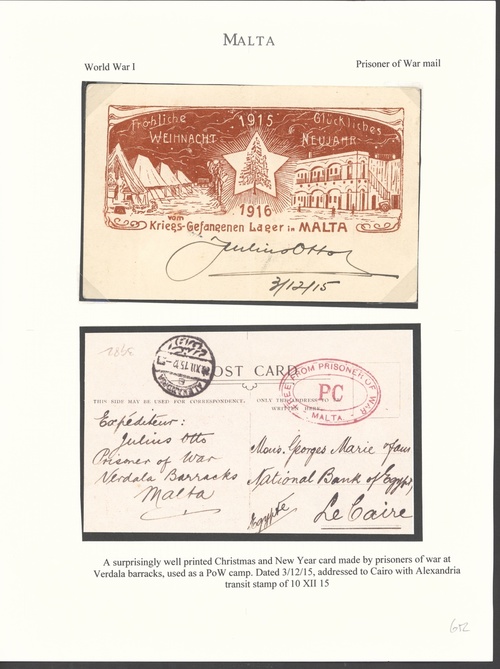 MALTA
World War I
Prisoner of War mail
Fröhliche 1915 Glückliches
WEIHNACHT NEUJAHR
1916
vom
Kriegs-Gefangenen Lager in MALTA
Julius Otto
3/12/15
POST CARD
THIS SIDE MAY BE USED FOR CORRESPONDENCE.
ONLY THE ADDRESS TO
WRITTEN HERE.
FREE FROM PRISONER OF WAR
PC
MALTA
Expéditeur:
Julius Otto
Prisoner of War
Verdala Barracks
Malta
Mons. Georges Marie
National Bank of Egypt,
Le Caire
Egypte
A surprisingly well printed Christmas and New Year card made by prisoners of war at
Verdala barracks, used as a PoW camp. Dated 3/12/15, addressed to Cairo with Alexandria
transit stamp of 10 XII 15